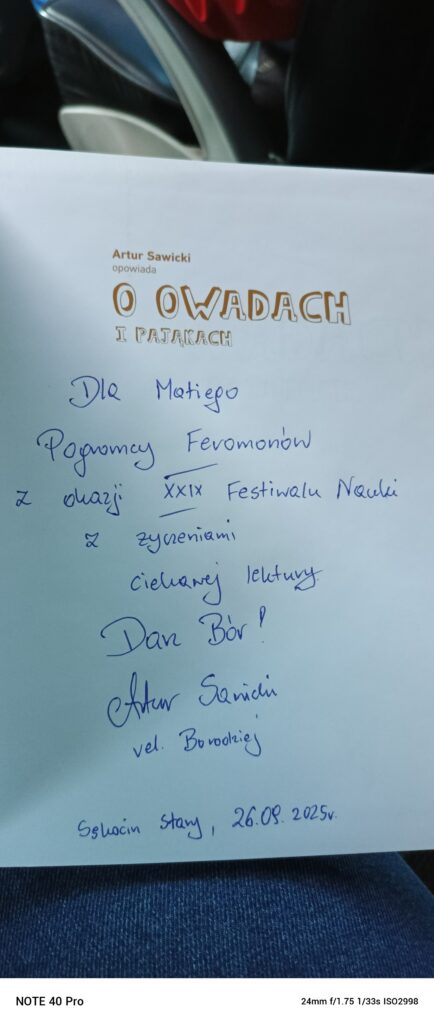 Artur Sawicki
opowiada
O OWADACH
I PAJĄKACH
Dla Matiego
Pogromcy Feromonów
z okazji XXIX Festiwalu Nauki
z życzeniami
ciekawej lektury
Darz Bór!
Artur Sawicki
vel. Borodziej
Sękocin Stary, 26.09.2025r.
NOTE 40 Pro
24mm f/1.75 1/33s ISO2998